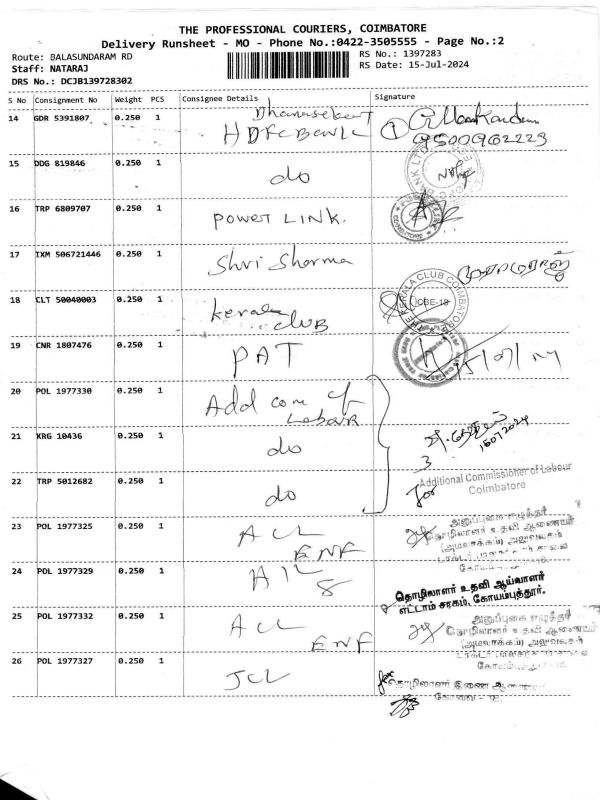 THE PROFESSIONAL COURIERS, COIMBATORE
Delivery Runsheet - MO - Phone No.:0422-3505555 - Page No.:2
Route: BALASUNDARAM RD
RS No.: 1397283
Staff: NATARAJ
RS Date: 15-Jul-2024
DRS No.: DCJB139728302
S No Consignment No Weight PCS Consignee Details Signature
14 GDR 5391807 0.250 1 Dhanasekar
HDFC Bank
9500962223
15 DDG 819846 0.250 1 do
16 TRP 6809707 0.250 1 POWER LINK.
17 IXM 506721446 0.250 1 Shri Sharma
18 CLT 50040003 0.250 1 Kerala CLUB
THE KERALA CLUB COIMBATORE
CBE-18
19 CNR 1807476 0.250 1 PAT
20 POL 1977330 0.250 1 Add com of Labour
21 KRG 10436 0.250 1 do
3
22 TRP 5012682 0.250 1 do
for Additional Commissioner of Labour
Coimbatore
23 POL 1977325 0.250 1 ACL ENF
அனுப்புகை எழுத்தர்
தொழிலாளர் உதவி ஆணையர்
(அமலாக்கம்) அலுவலகம்
24 POL 1977329 0.250 1 AIL 8
தொழிலாளர் உதவி ஆய்வாளர்
எட்டாம் சரகம், கோயம்புத்தூர்.
25 POL 1977332 0.250 1 ACL ENF
அனுப்புகை எழுத்தர்
தொழிலாளர் உதவி ஆணையர்
(அமலாக்கம்) அலுவலகம்
26 POL 1977327 0.250 1 JCL
for தொழிலாளர் இணை ஆணையர்
கோவை - 18